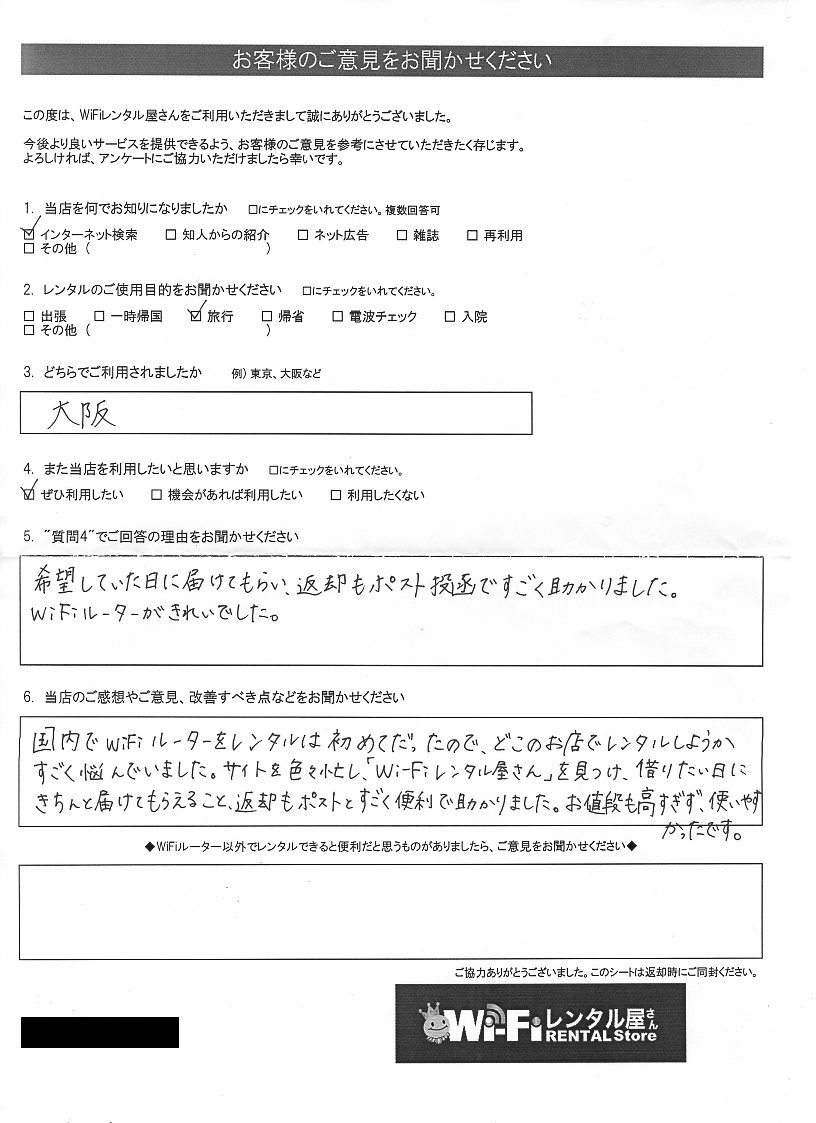 お客様のご意見をお聞かせください
この度は、WiFiレンタル屋さんをご利用いただきまして誠にありがとうございました。
今後より良いサービスを提供できるよう、お客様のご意見を参考にさせていただきたく存じます。
よろしければ、アンケートにご協力いただけましたら幸いです。
1. 当店を何でお知りになりましたか □にチェックをいれてください。複数回答可
☑ インターネット検索 □ 知人からの紹介 □ ネット広告 □ 雑誌 □ 再利用
□ その他 ( )
2. レンタルのご使用目的をお聞かせください □にチェックをいれてください。
□ 出張 □ 一時帰国 ☑ 旅行 □ 帰省 □ 電波チェック □ 入院
□ その他 ( )
3. どちらでご利用されましたか 例) 東京、大阪など
大阪
4. また当店を利用したいと思いますか □にチェックをいれてください。
☑ ぜひ利用したい □ 機会があれば利用したい □ 利用したくない
5. ˝質問4˝でご回答の理由をお聞かせください
希望していた日に届けてもらい、返却もポスト投函ですごく助かりました。
WiFiルーターがきれいでした。
6. 当店のご感想やご意見、改善すべき点などをお聞かせください
国内でWiFiルーターをレンタルは初めてだったので、どこのお店でレンタルしようか
すごく悩んでいました。サイトを色々し、「Wi-Fiレンタル屋さん」を見つけ、借りたい日に
きちんと届けてもらえること、返却もポストとすごく便利で助かりました。お値段も高すぎず、使いやす
かったです。
◆WiFiルーター以外でレンタルできると便利だと思うものがありましたら、ご意見をお聞かせください◆
ご協力ありがとうございました。このシートは返却時にご同封ください。
Wi-Fi レンタル屋さん
RENTAL Store